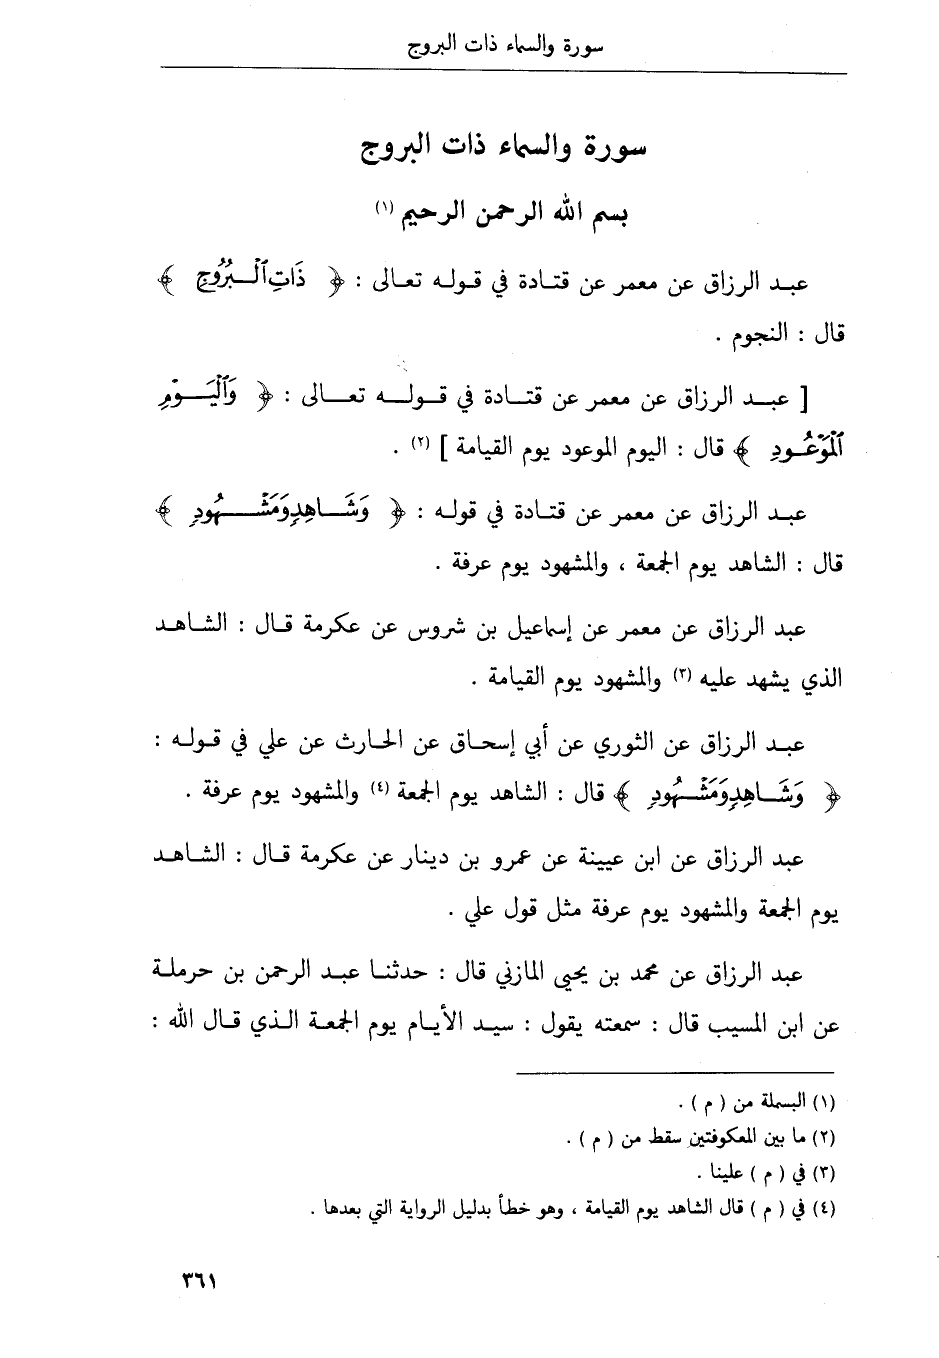 سورة والسماء ذات البروج
سورة والسماء ذات البروج
بسم الله الرحمن الرحيم (١)
عبد الرزاق عن معمر عن قتادة في قوله تعالى : ﴿ ذَاتِ ٱلْبُرُوجِ ﴾
قال : النجوم .
[ عبد الرزاق عن معمر عن قتادة في قوله تعالى : ﴿ وَٱلْيَوْمِ
ٱلْمَوْعُودِ ﴾ قال : اليوم الموعود يوم القيامة ] (٢) .
عبد الرزاق عن معمر عن قتادة في قوله : ﴿ وَشَاهِدٍ وَمَشْهُودٍ ﴾
قال : الشاهد يوم الجمعة ، والمشهود يوم عرفة .
عبد الرزاق عن معمر عن إسماعيل بن شروس عن عكرمة قال : الشاهد
الذي يشهد عليه (٣) والمشهود يوم القيامة .
عبد الرزاق عن الثوري عن أبي إسحاق عن الحارث عن علي في قوله :
﴿ وَشَاهِدٍ وَمَشْهُودٍ ﴾ قال : الشاهد يوم الجمعة (٤) والمشهود يوم عرفة .
عبد الرزاق عن ابن عيينة عن عمرو بن دينار عن عكرمة قال : الشاهد
يوم الجمعة والمشهود يوم عرفة مثل قول علي .
عبد الرزاق عن محمد بن يحيى المازني قال : حدثنا عبد الرحمن بن حرملة
عن ابن المسيب قال : سمعته يقول : سيد الأيام يوم الجمعة الذي قال الله :
(١) البسملة من ( م ) .
(٢) ما بين المعكوفتين سقط من ( م ) .
(٣) في ( م ) علينا .
(٤) في ( م ) قال الشاهد يوم القيامة ، وهو خطأ بدليل الرواية التي بعدها .
٣٦١